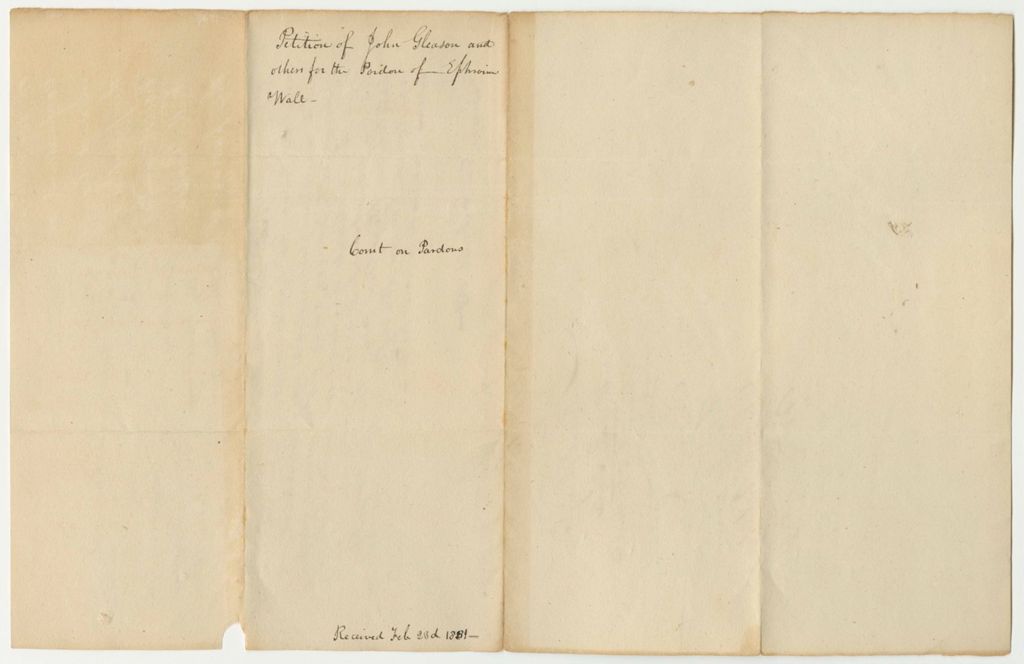 Petition of John Gleason and
others for the Pardon of Ephraim
Wall -
Comt on Pardons
Received Feb 28d 1831 -